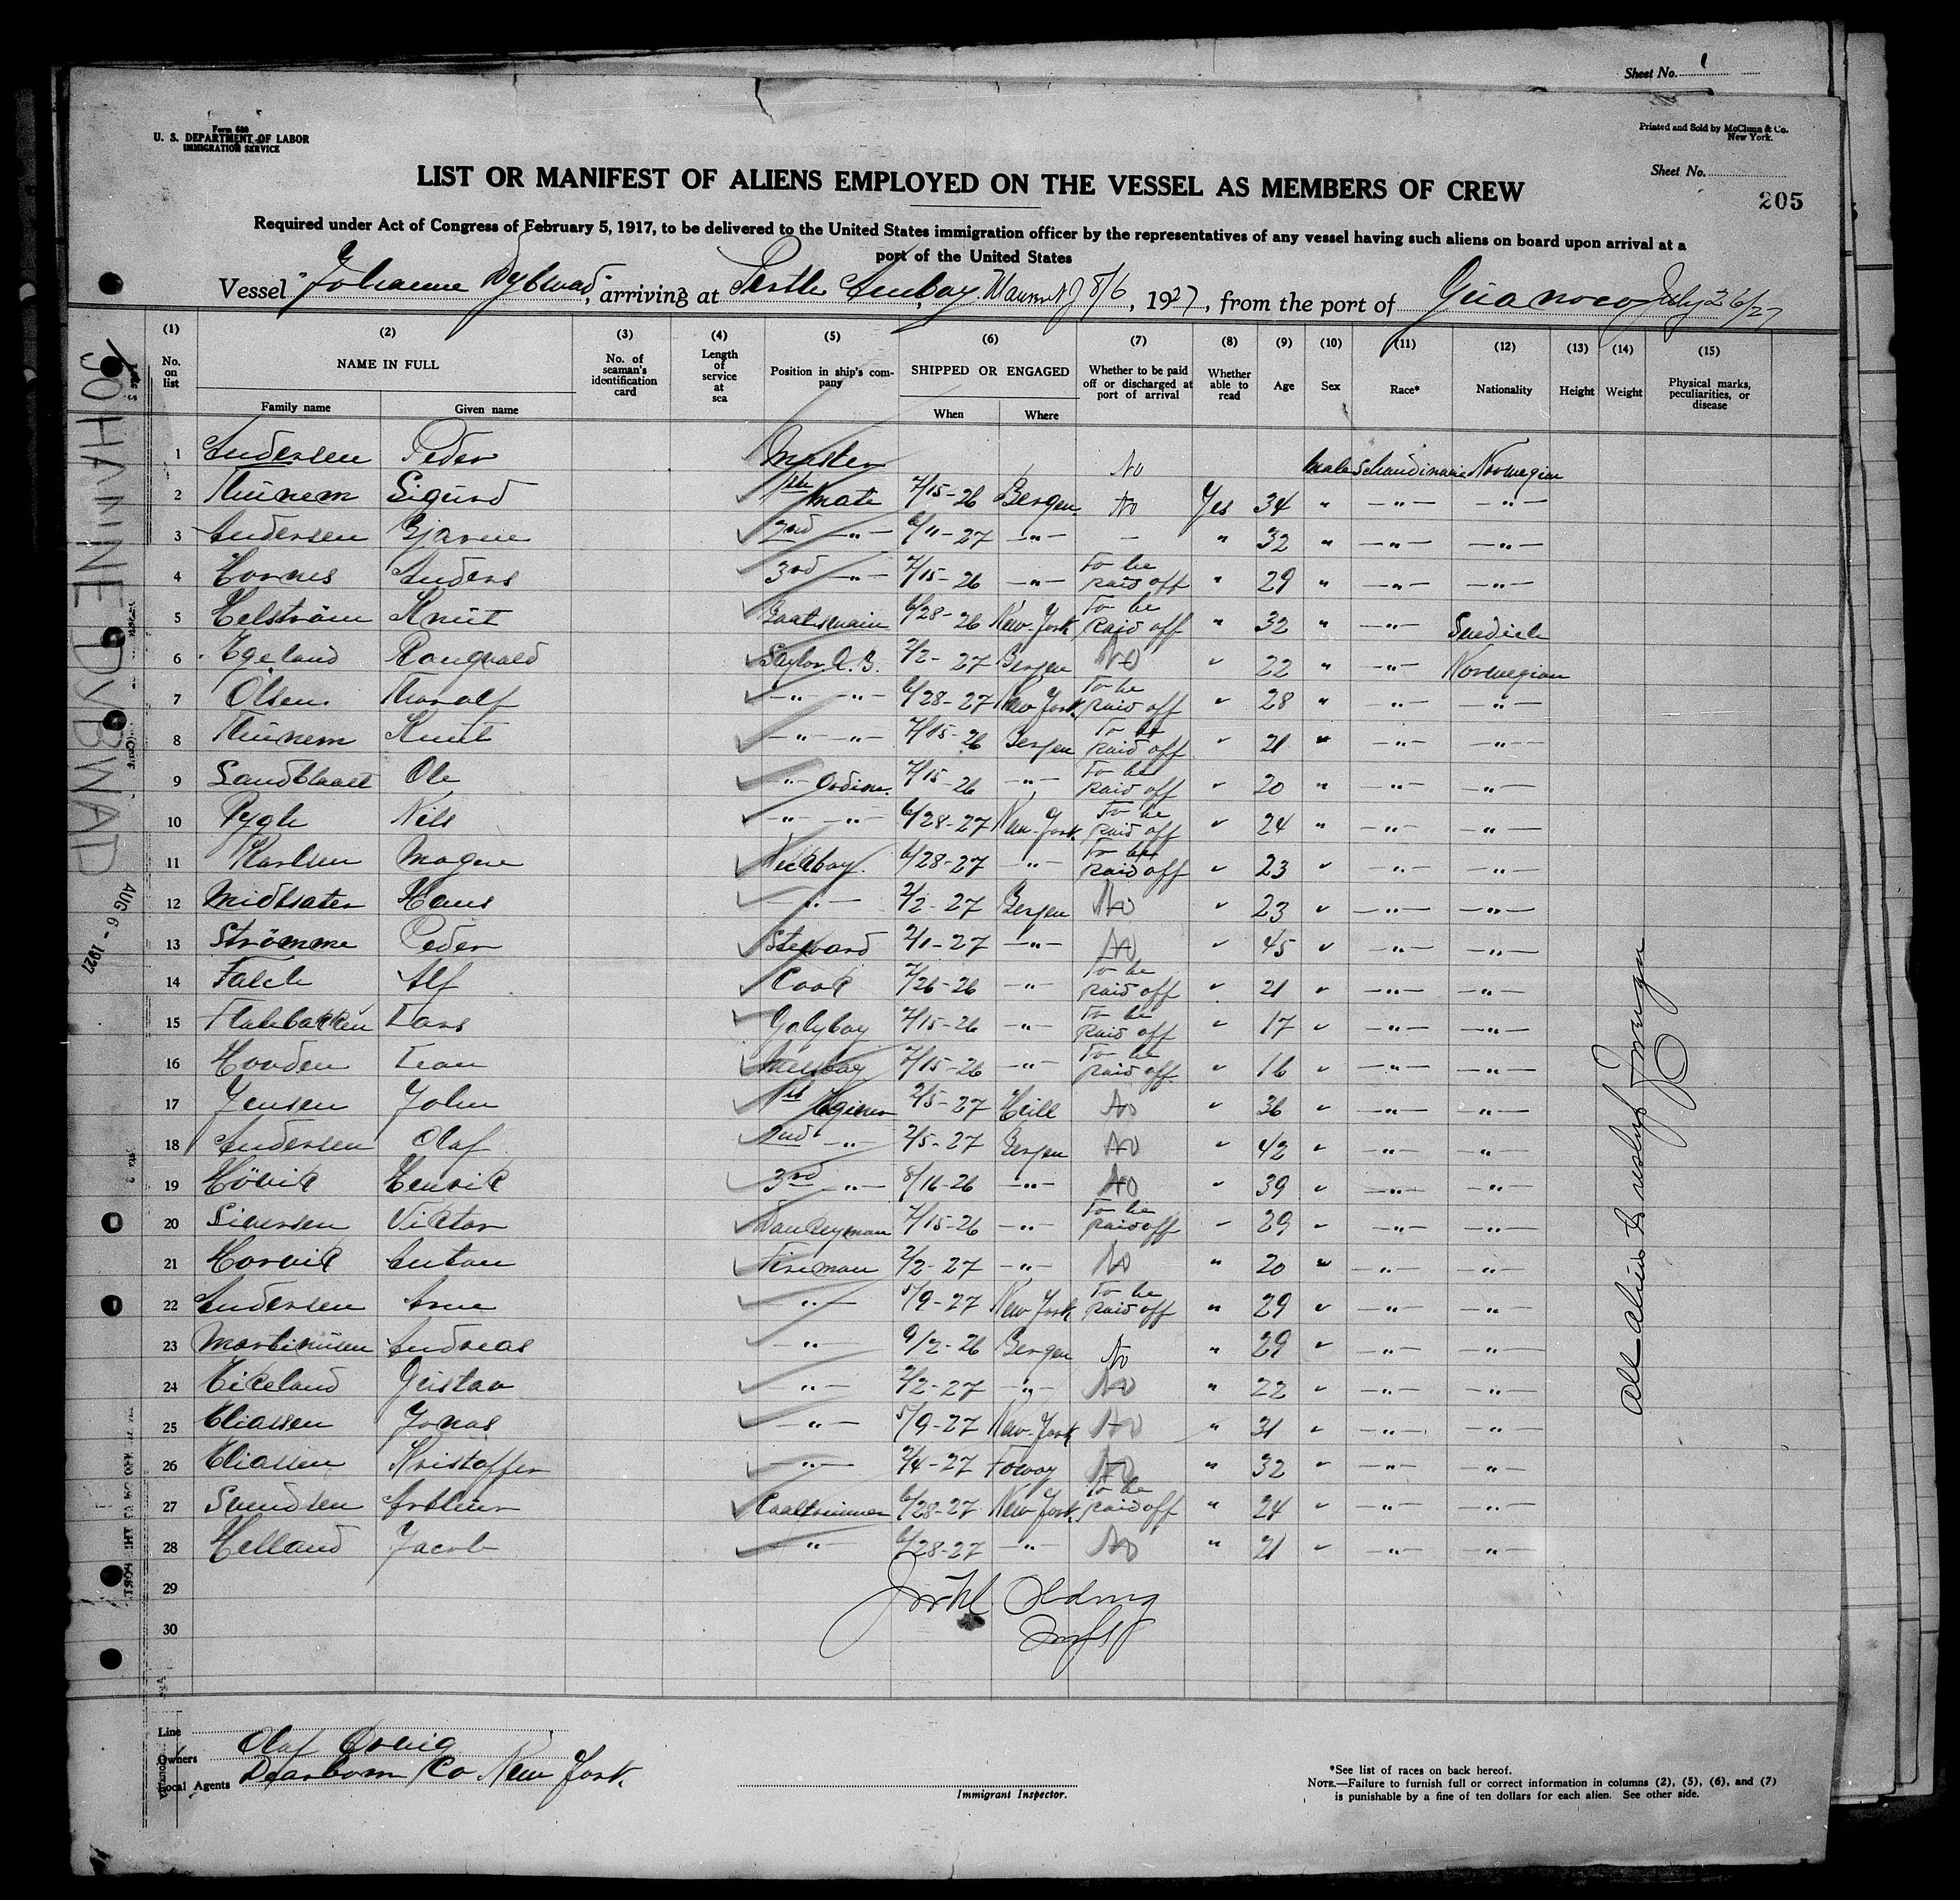 Sheet No. 1
Form 680
U. S. DEPARTMENT OF LABOR
IMMIGRATION SERVICE
Printed and Sold by McClunn & Co.
New York.
Sheet No.
LIST OR MANIFEST OF ALIENS EMPLOYED ON THE VESSEL AS MEMBERS OF CREW
205
Required under Act of Congress of February 5, 1917, to be delivered to the United States immigration officer by the representatives of any vessel having such aliens on board upon arrival at a
port of the United States
Vessel Johanne Dybwad, arriving at Perth Amboy 8/6, 1927, from the port of Guanoco July 26/27
(1) (2) (3) (4) (5) (6) (7) (8) (9) (10) (11) (12) (13) (14) (15)
No. on list NAME IN FULL No. of seaman's identification card Length of service at sea Position in ship's company SHIPPED OR ENGAGED Whether to be paid off or discharged at port of arrival Whether able to read Age Sex Race* Nationality Height Weight Physical marks, peculiarities, or disease
Family name Given name When Where
1 Andersen Peder Master No Male Schandinavie Norwegian
2 Thünem Sigurd 1st Mate 7/15-26 Bergen No Yes 34 " —"— —"—
3 Andersen Bjarne 2nd —"— 6/11-27 —"— — " 32 " —"— —"—
4 Hornes Anders 3rd —"— 7/15-26 —"— To be paid off " 29 " —"— —"—
5 Helström Knüt Boatsmain 6/28-26 New-York To be paid off " 32 " —"— Swedish
6 Egeland Rangvald Saylor A.B. 2/2-27 Bergen No " 22 " —"— Norwegian
7 Olsen Thoralf —"— —"— 6/28-27 New York To be paid off " 28 " —"— —"—
8 Thünem Knut —"— —"— 7/15-26 Bergen To be paid off " 21 " —"— —"—
9 Sandblaast Ole —"— Ordin. 7/15-26 —"— To be paid off " 20 " —"— —"—
10 Rygh Nils —"— —"— 6/28-27 New-York To be paid off " 24 " —"— —"—
11 Karlsen Magne Deckboy 6/28-27 —"— To be paid off " 23 " —"— —"—
12 Midtsater Hans —"— 2/2-27 Bergen No " 23 " —"— —"—
13 Strömme Peder Steward 2/1-27 —"— No " 45 " —"— —"—
14 Falch Alf Cook 7/26-26 —"— To be paid off " 21 " —"— —"—
15 Flatebakken Lars Galyboy 7/15-26 —"— To be paid off " 17 " —"— —"—
16 Hovden Leon Messboy 7/15-26 —"— To be paid off " 16 " —"— —"—
17 Jensen John 1st 2/5-27 Hull No " 36 " —"— —"—
18 Andersen Olaf 2nd —"— 2/5-27 Bergen No " 42 " —"— —"—
19 Hövik Henrik 3rd —"— 8/16-26 —"— No " 39 " —"— —"—
20 Siversen Viktor Donkeyman 7/15-26 —"— To be paid off " 29 " —"— —"—
21 Horvik Anton Fireman 2/2-27 —"— No " 20 " —"— —"—
22 Andersen Arne —"— 5/9-27 New York To be paid off " 29 " —"— —"—
23 Martinüsen Andreas —"— 9/2-26 Bergen No " 29 " —"— —"—
24 Eikeland Güstav —"— 2/2-27 —"— No " 22 " —"— —"—
25 Eliassen Jonas —"— 5/9-27 New-York No " 31 " —"— —"—
26 Eliassen Kristoffer —"— 2/4-27 Fowey No " 32 " —"— —"—
27 Svendsen Arthur Coaltrimmer 6/28-27 New York To be paid off " 24 " —"— —"—
28 Helland Jacob —"— 6/28-27 —"— No " 21 " —"— —"—
29
30
Line
Owners Olaf Orvig
Local Agents Dearborn Co New York.
Immigrant Inspector.
*See list of races on back hereof.
NOTE.—Failure to furnish full or correct information in columns (2), (5), (6), and (7)
is punishable by a fine of ten dollars for each alien. See other side.
JOHANNE DYBWAD
AUG 6 - 1927